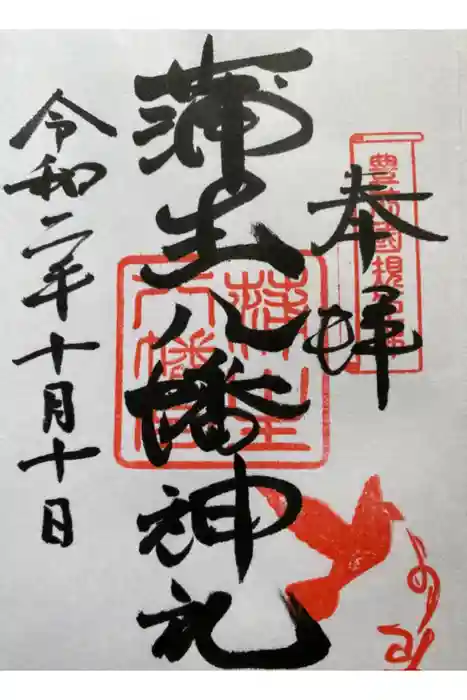 奉拝
豊前國規矩郡
蒲生八幡神社
蒲生
八幡
令和二年十月十日